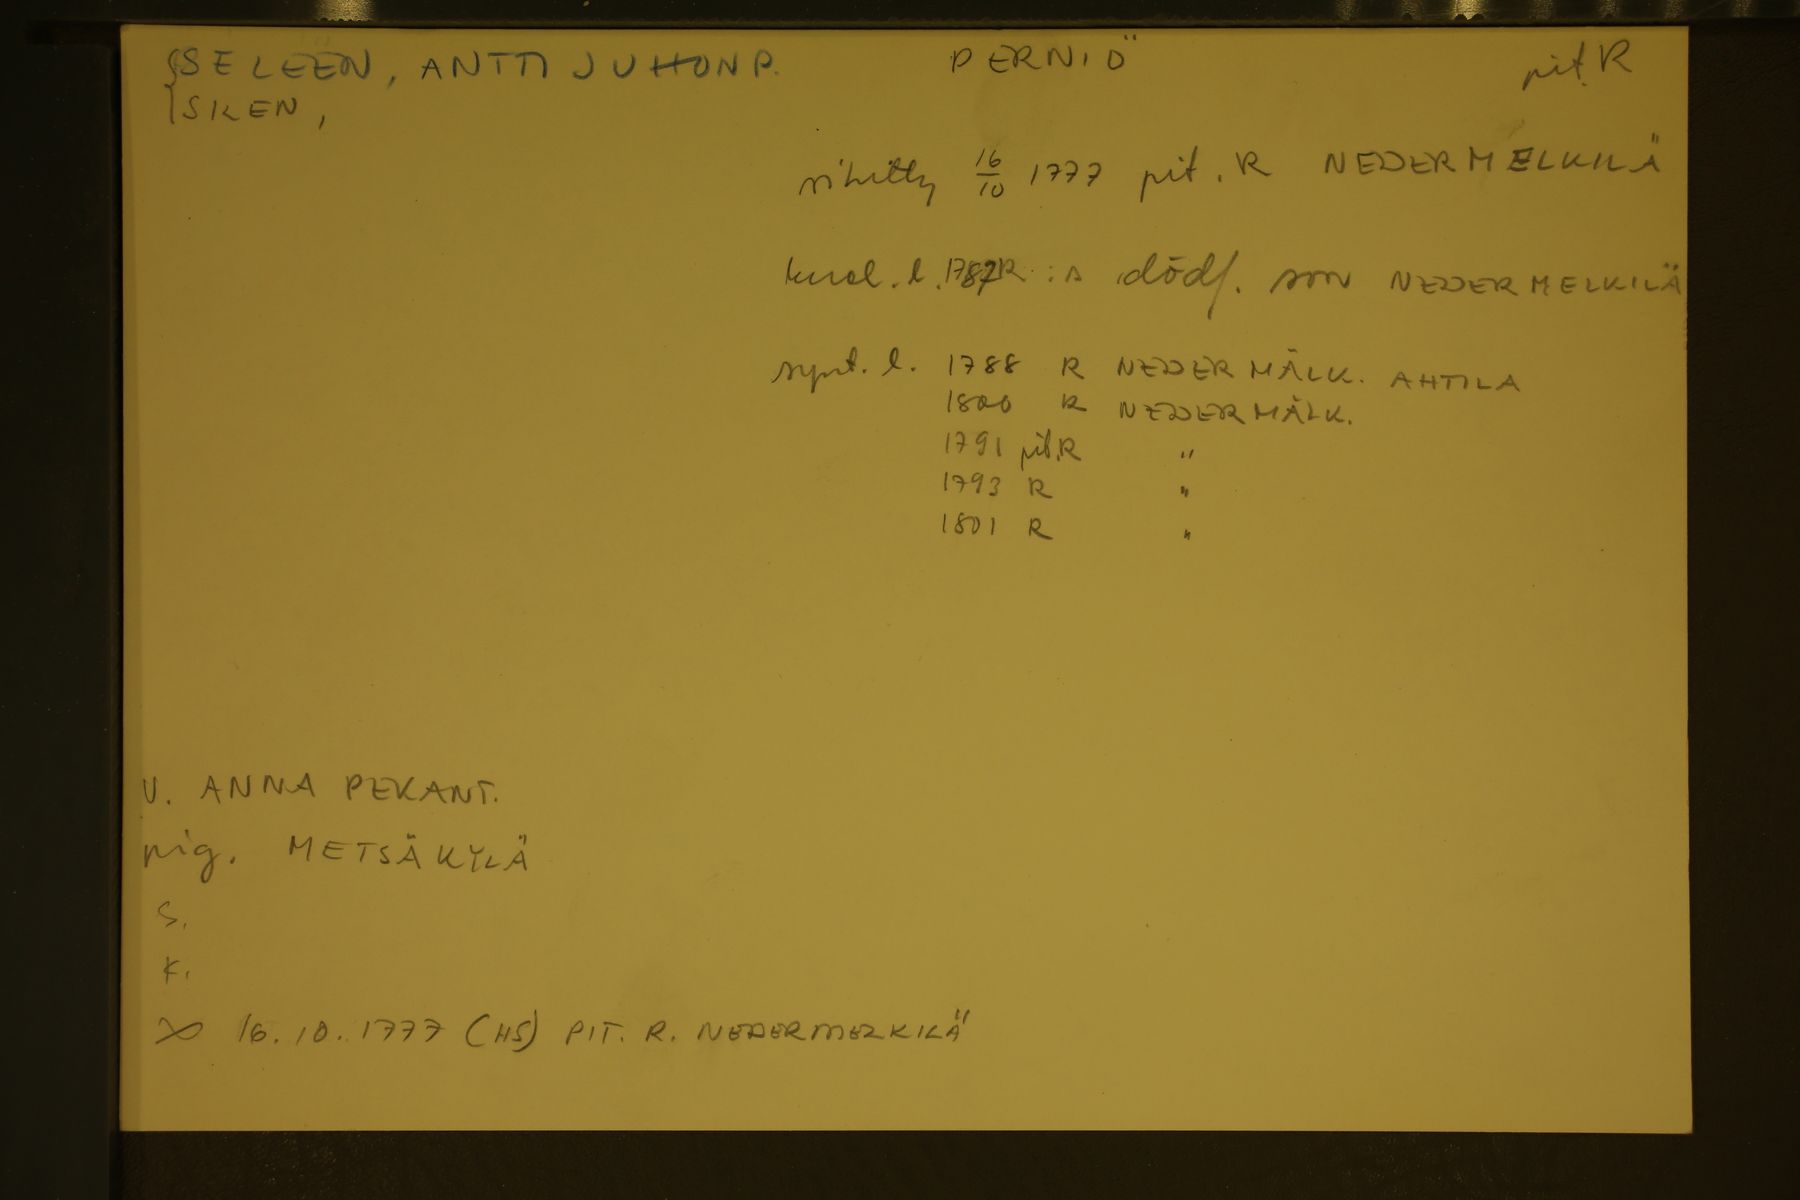 SELEEN, ANTTI JUHONP. PERNIÖ pit. R
SKEN,
vihitty 16/10 1777 pit. R NEDERMELKILÄ
kuol. l. 1782 R :s dödf. son NEDERMELKILÄ
synt. l. 1788 R NEDERMÄLK. AHTILA
1800 R NEDERMÄLK.
1791 pit. R "
1793 R "
1801 R "
V. ANNA PEKANT.
pig. METSÄKYLÄ
S.
K.
∞ 16.10.1777 (HS) PIT. R. NEDERMELKILÄ